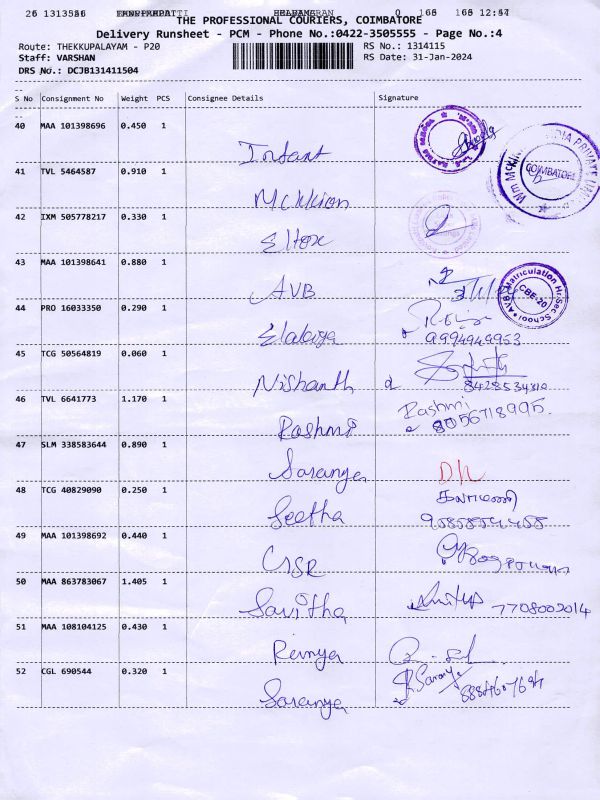 26 1313536 0 168 168 12:47
THE PROFESSIONAL COURIERS, COIMBATORE
Delivery Runsheet - PCM - Phone No.:0422-3505555 - Page No.:4
Route: THEKKUPALAYAM - P20 RS No.: 1314115
Staff: VARSHAN RS Date: 31-Jan-2024
DRS No.: DCJB131411504
S No Consignment No Weight PCS Consignee Details Signature
40 MAA 101398696 0.450 1
Infant
41 TVL 5464587 0.910 1 COIMBATORE
McKkion
42 IXM 505778217 0.330 1
Eltex
43 MAA 101398641 0.880 1 AVB Matriculation Hr.Sec School CBE-20
AVB
44 PRO 16033350 0.290 1
Elakiya 9994949953
45 TCG 50564819 0.060 1
Nishanth 8428534310
46 TVL 6641773 1.170 1 Rashmi
Rashmi 8056718995.
47 SLM 338583644 0.890 1
Saranya
48 TCG 40829090 0.250 1 கலாமணி
Seetha 9585854455
49 MAA 101398692 0.440 1
CSSR
50 MAA 863783067 1.405 1
Savitha 7708002014
51 MAA 108104125 0.430 1
Remya
52 CGL 690544 0.320 1 Saranya
Saranya 8884607694